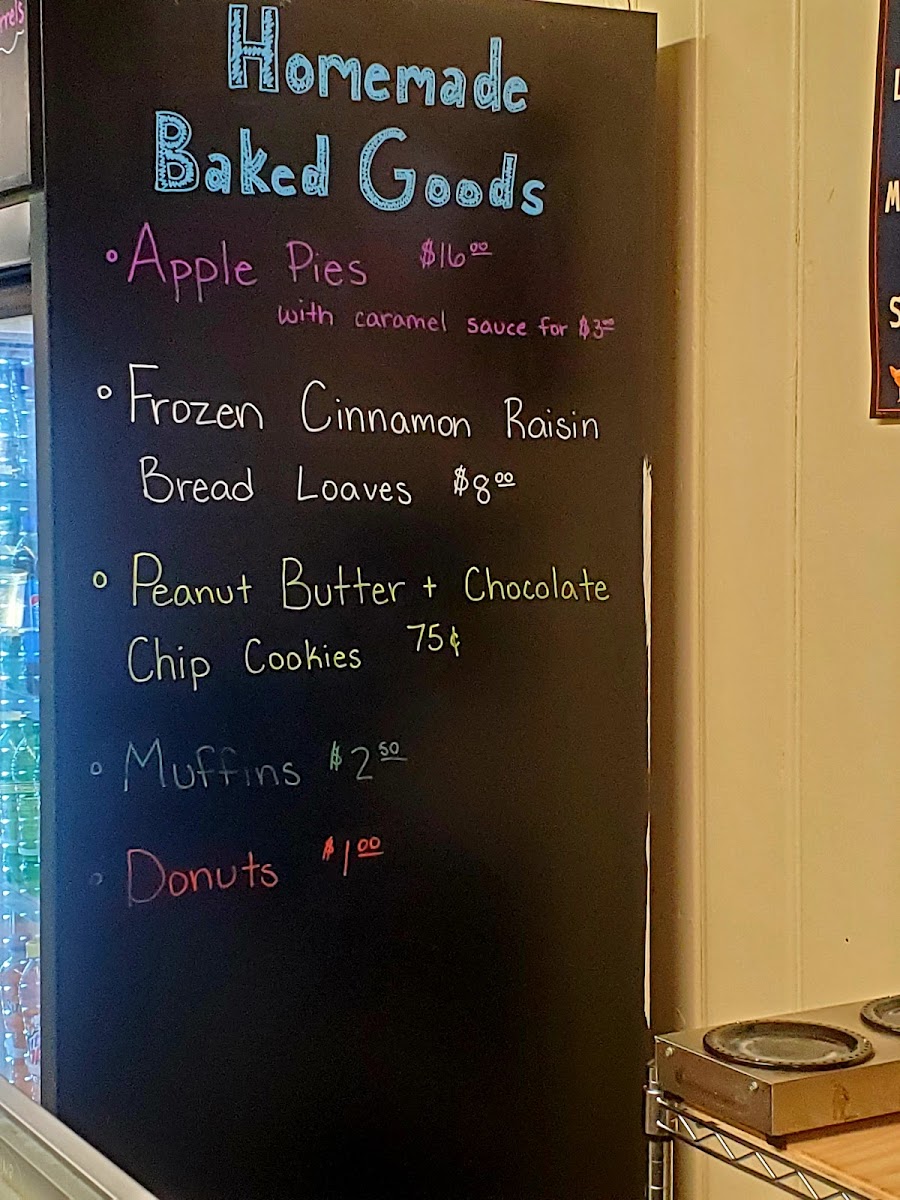 Homemade
Baked Goods
• Apple Pies $16.00
with caramel sauce for $3.00
• Frozen Cinnamon Raisin
Bread Loaves $8.00
• Peanut Butter + Chocolate
Chip Cookies 75¢
• Muffins $2.50
• Donuts $1.00